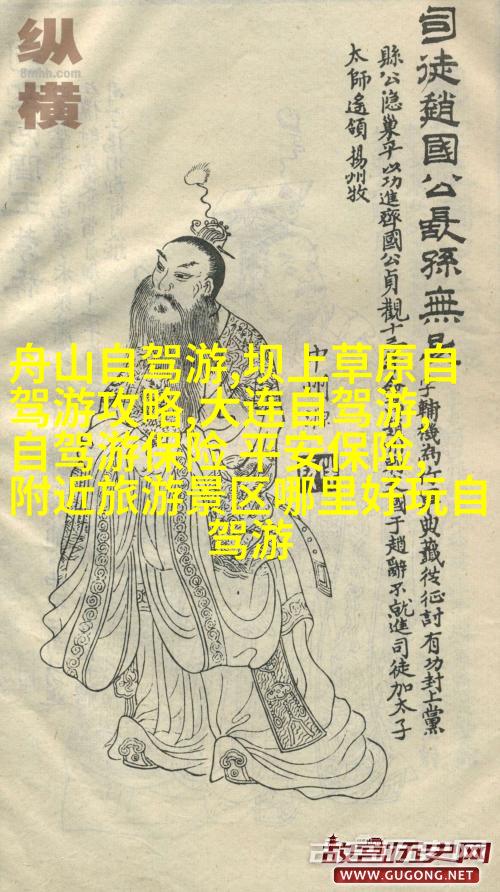 纵横
8mhh.com
司徒趙國公長孫無忌
字輔機為
典籤從征討有功封上黨
縣公隐巢平以功進齊國公貞觀十
國于趙辭不就進司徒加太子
太師遙領揚州牧
舟山自驾游,坝上草原自
驾游攻略,大连自驾游,
自驾游保险 平安保险,
附近旅游景区哪里好玩自
驾游
故宫历史网
WWW.GUGONG.NET